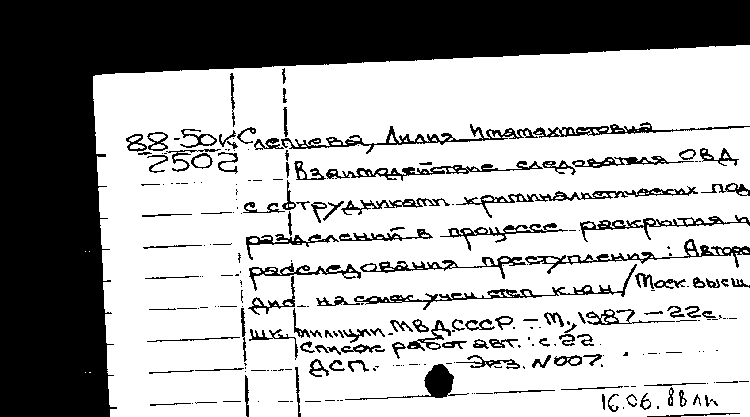 88-50К Слепнева, Лилия Имамахметовна
2502 Взаимодействие следователя ОВД
с сотрудниками криминалистических под
разделений в процессе раскрытия и
расследования преступления: Авторе
дис на соиск. учен. степ к.ю.н / Моск. высш.
шк. милиции МВД СССР. – М., 1987. – 22с.
Список работ авт.: с.22
ДСП. Экз. N007.
16.06.88